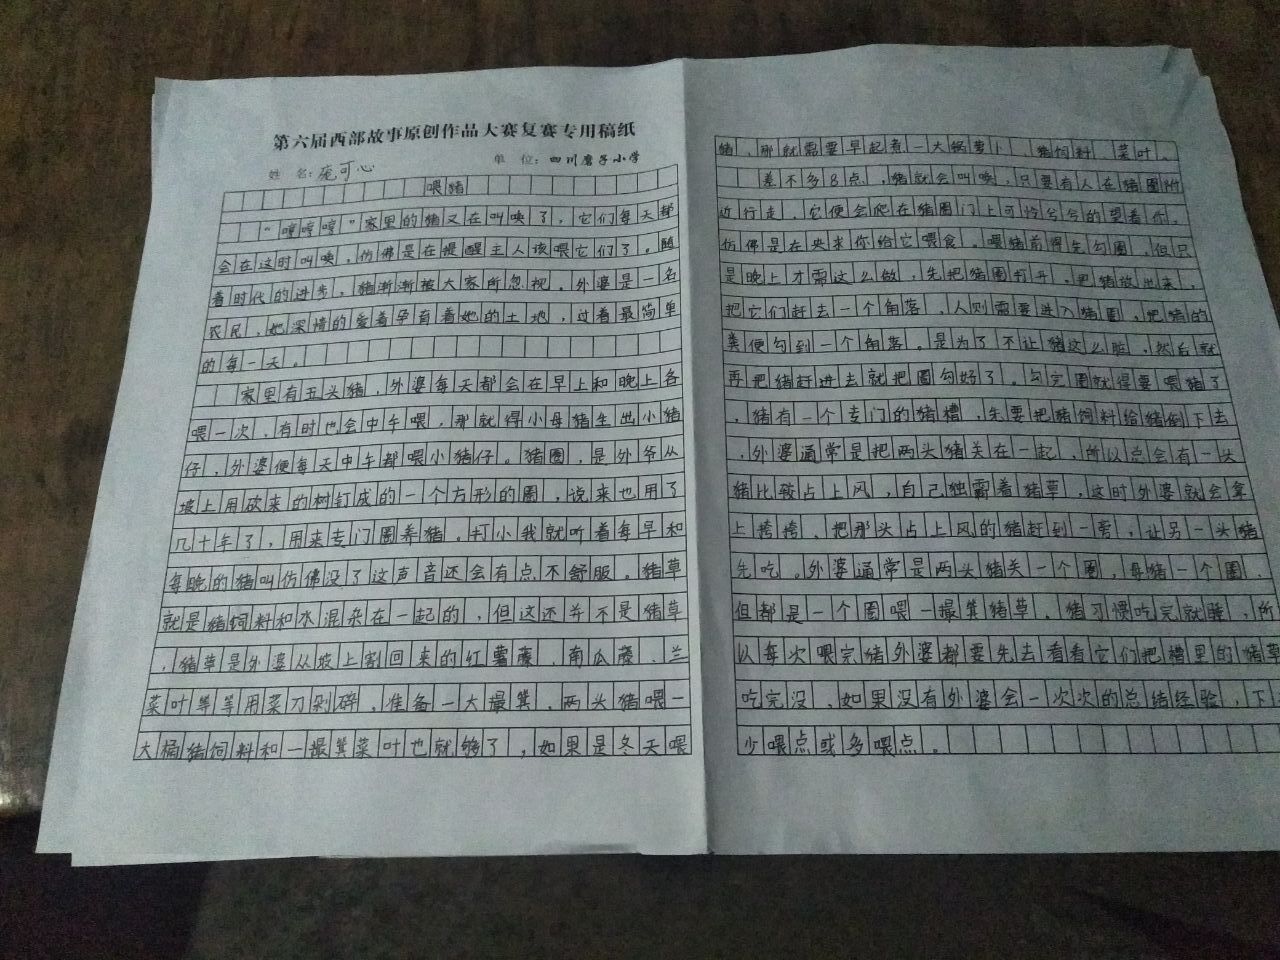 第六届西部故事原创作品大赛复赛专用稿纸
姓 名：庞可心
单 位：四川磨子小学
喂猪
“哼哼哼”家里的猪又在叫唤了，它们每天都
会在这时叫唤，仿佛是在提醒主人该喂它们了。随
着时代的进步，猪渐渐被大家所忽视。外婆是一名
农民，她深情的爱着孕育着她的土地，过着最简单
的每一天。
家里有五头猪，外婆每天都会在早上和晚上各
喂一次，有时也会中午喂，那就得小母猪生出小猪
仔，外婆便每天中午都喂小猪仔。猪圈，是外爷从
坡上用砍来的树钉成的一个方形的圈，说来也用了
几十年了，用来专门圈养猪。打小我就听着每早和
每晚的猪叫仿佛没了这声音还会有点不舒服。猪草
就是猪饲料和水混杂在一起的，但这还并不是猪草
，猪草是外婆从坡上割回来的红薯藤、南瓜藤、兰
菜叶等等用菜刀剁碎，准备一大撮箕，两头猪喂一
大桶猪饲料和一撮箕菜叶也就够了，如果是冬天喂
猪，那就需要早起煮一大锅萝卜、猪饲料、菜叶。
差不多8点，猪就会叫唤，只要有人在猪圈附
近行走，它便会爬在猪圈门上可怜兮兮的望着你。
仿佛是在央求你给它喂食。喂猪前得先勾圈，但只
是晚上才需这么做，先把猪圈打开，把猪放出来，
把它们赶去一个角落，人则需要进入猪圈，把猪的
粪便勾到一个角落。是为了不让猪这么脏，然后就
再把猪赶进去就把圈勾好了。勾完圈就得要喂猪了
，猪有一个专门的猪槽，先要把猪饲料给猪倒下去
，外婆通常是把两头猪关在一起，所以总会有一头
猪比较占上风，自己独霸着猪草，这时外婆就会拿
上挎挎，把那头占上风的猪赶到一旁，让另一头猪
先吃。外婆通常是两头猪关一个圈，母猪一个圈，
但都是一个圈喂一撮箕猪草。猪习惯吃完就睡，所
以每次喂完猪外婆都要先去看看它们把槽里的猪草
吃完没，如果没有外婆会一次次的总结经验，下
少喂点或多喂点。